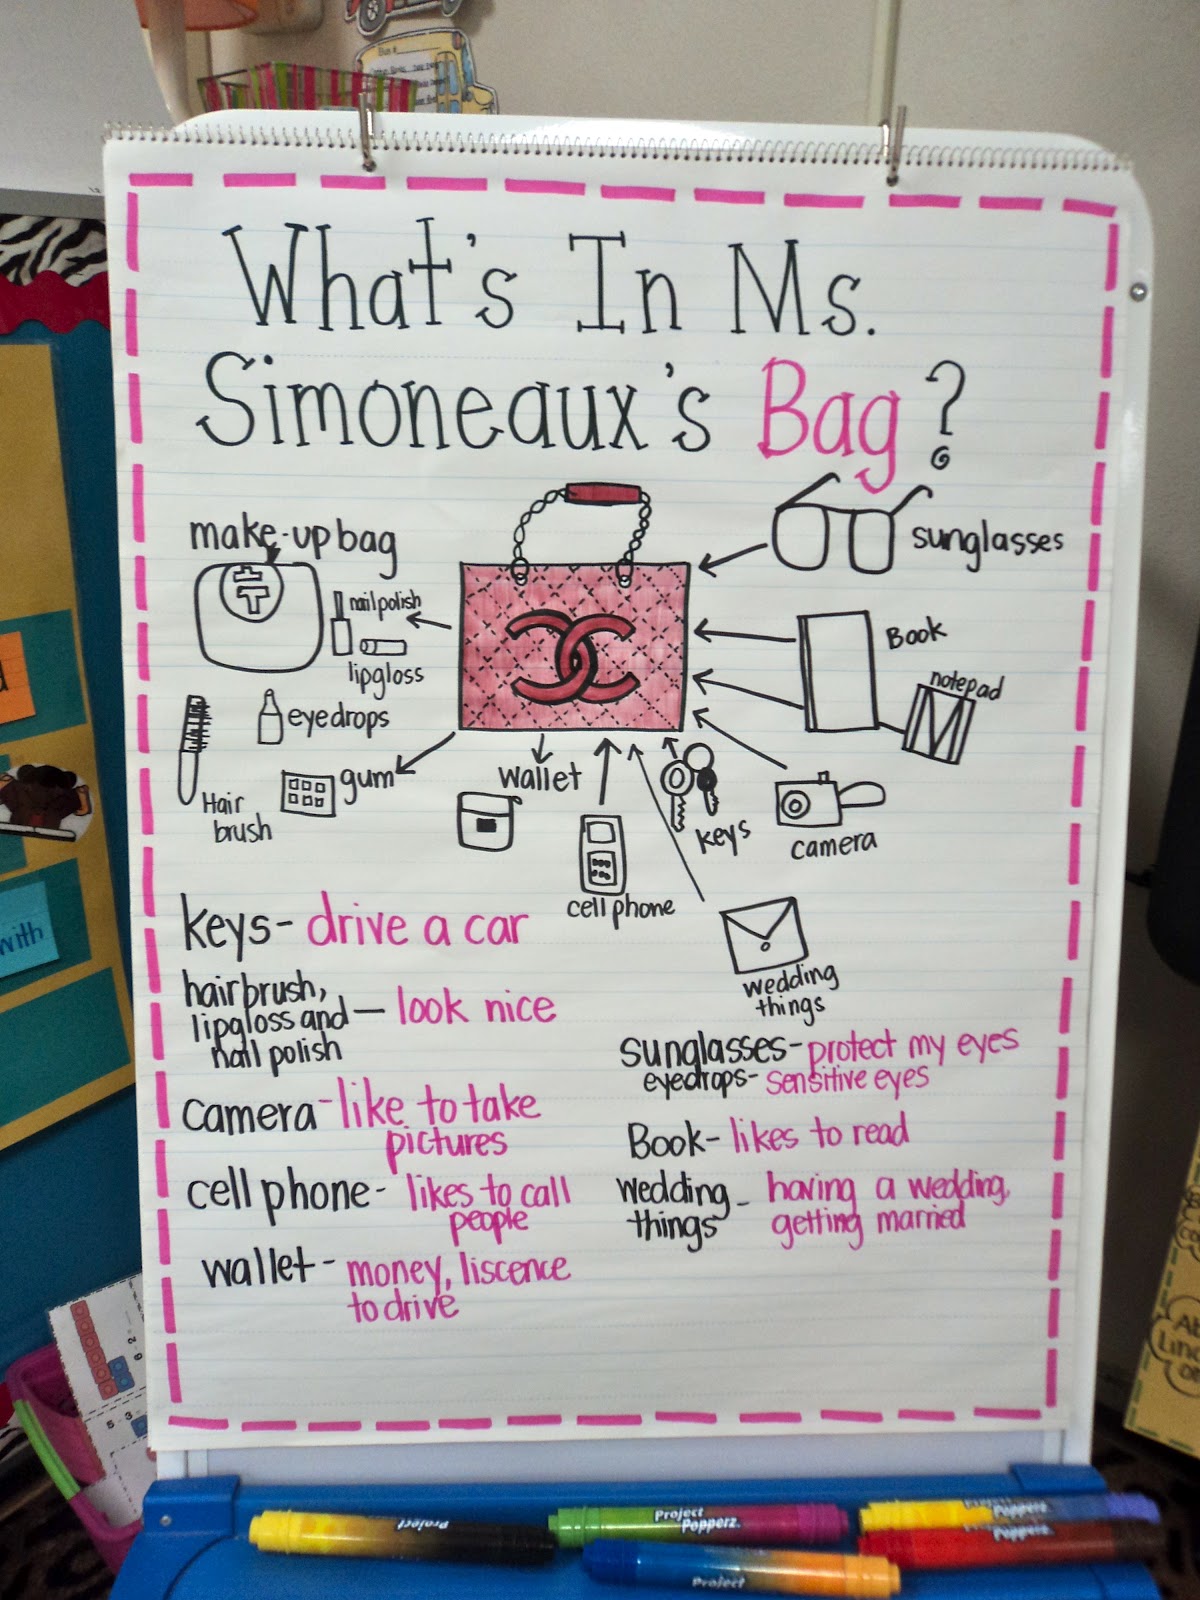 What's In Ms.
Simoneaux's Bag?
make-up bag
nail polish
lipgloss
eyedrops
Hair
brush
gum
wallet
cell phone
keys
wedding
things
camera
notepad
Book
sunglasses
keys- drive a car
hairbrush,
lipgloss and — look nice
nail polish
camera-like to take
pictures
cell phone- likes to call
people
wallet- money, liscence
to drive
sunglasses-protect my eyes
eyedrops- sensitive eyes
Book- likes to read
wedding - having a wedding,
things getting married
with
Project
Project
Popperz
Project
Popperz
Popperz